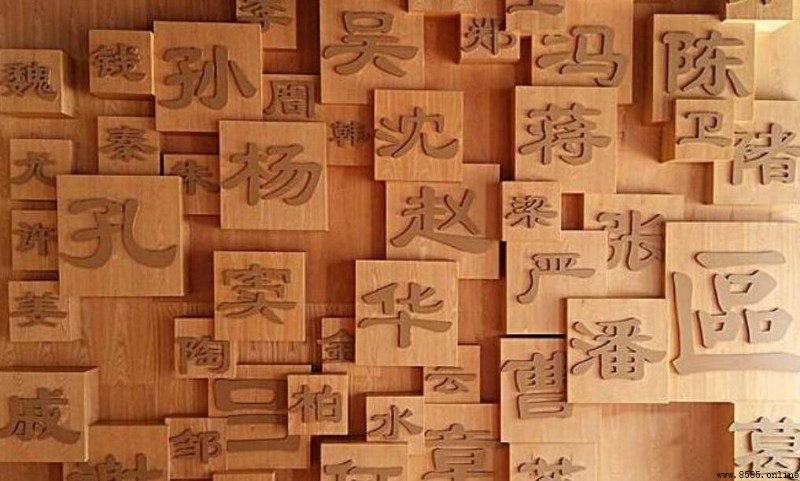 李
吴
郑
王
冯
陈
魏
钱
孙
周
韩
沈
蒋
卫
褚
尤
秦
朱
杨
许
孔
赵
梁
张
姜
窦
华
严
區
陶
金
潘
戚
柏
云
曹
邹
吕
水
章
葛
谢
何
苏
www.8585.online